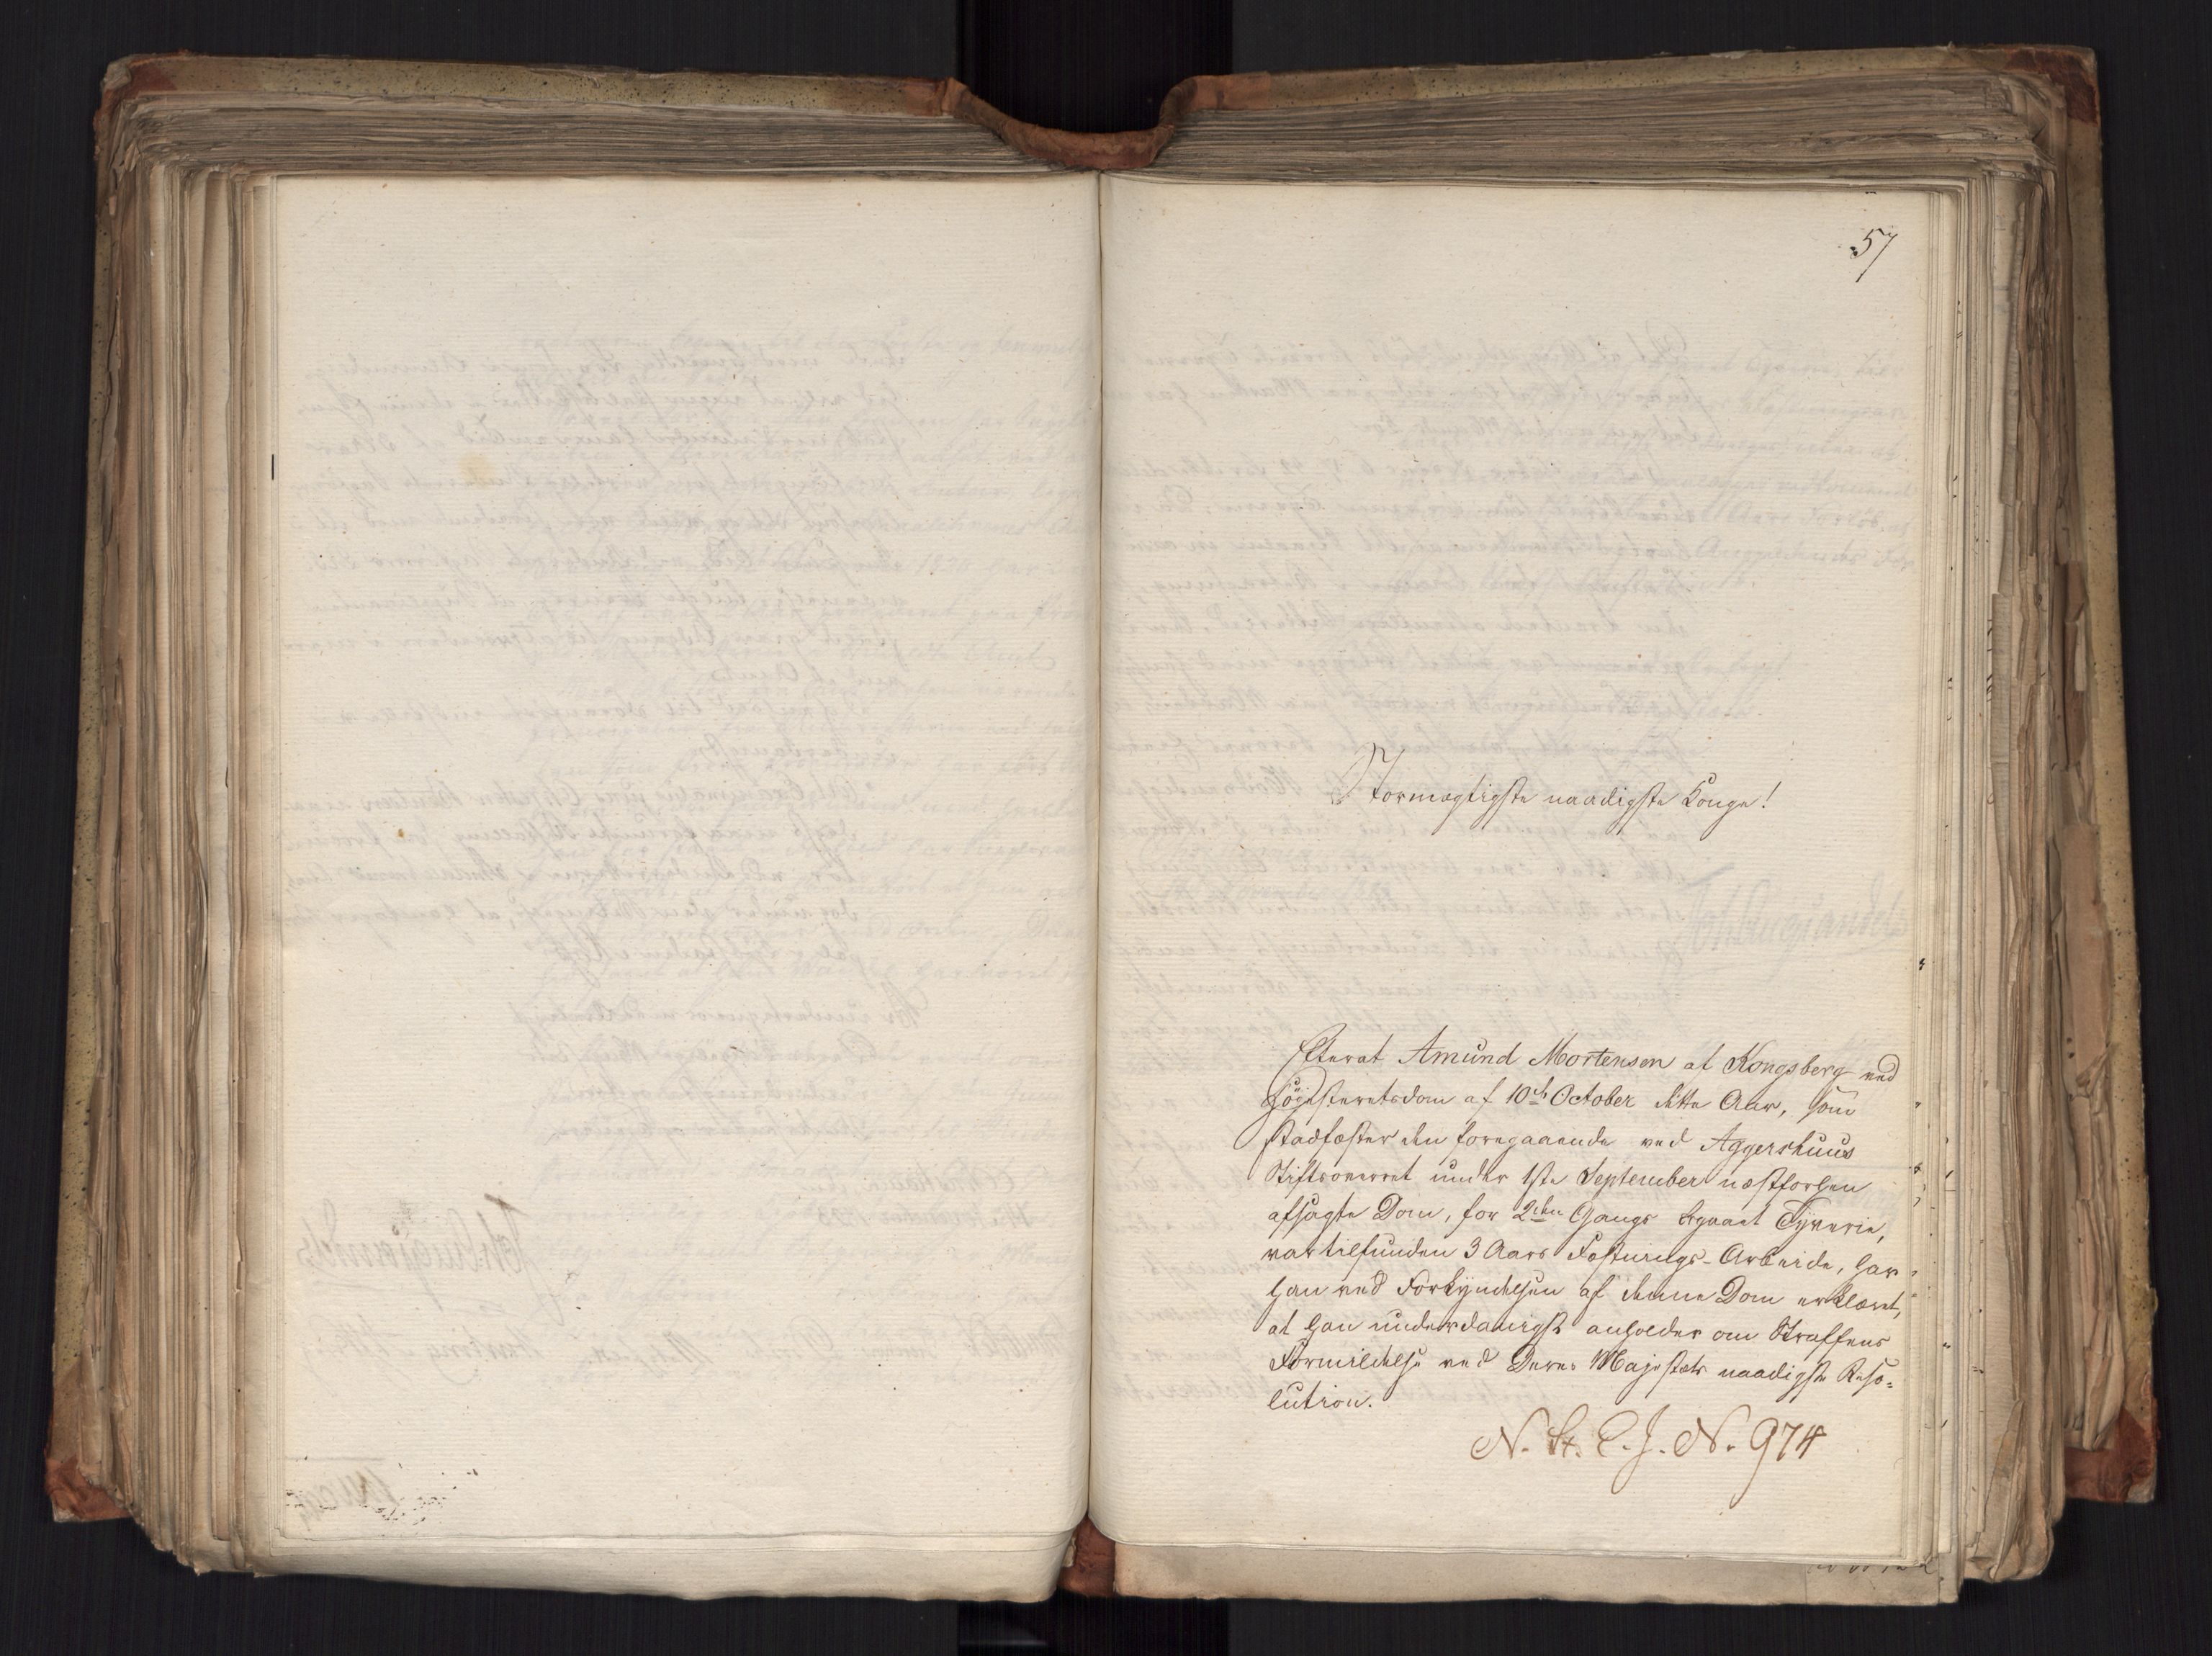 57
Stormægtigste naadigste Konge!
Efterat Amund Mortensen af Kongsberg ved
Höiesteretsdom af 10de October dette Aar, som
stadfæster den foregaaende ved Aggershuus
Stiftsoverret under 1ste September næstforhen
afsagte Dom, for 2den Gangs begaaet Tyverie,
var tilfunden 3 Aars Fæstnings-Arbeide, har
han ved Forkyndelsen af denne Dom erklæret,
at han underdanigst anholder om Straffens
Formildelse ved Deres Majestæts naadigste Reso-
lution.
N. St. C. J. N. 974